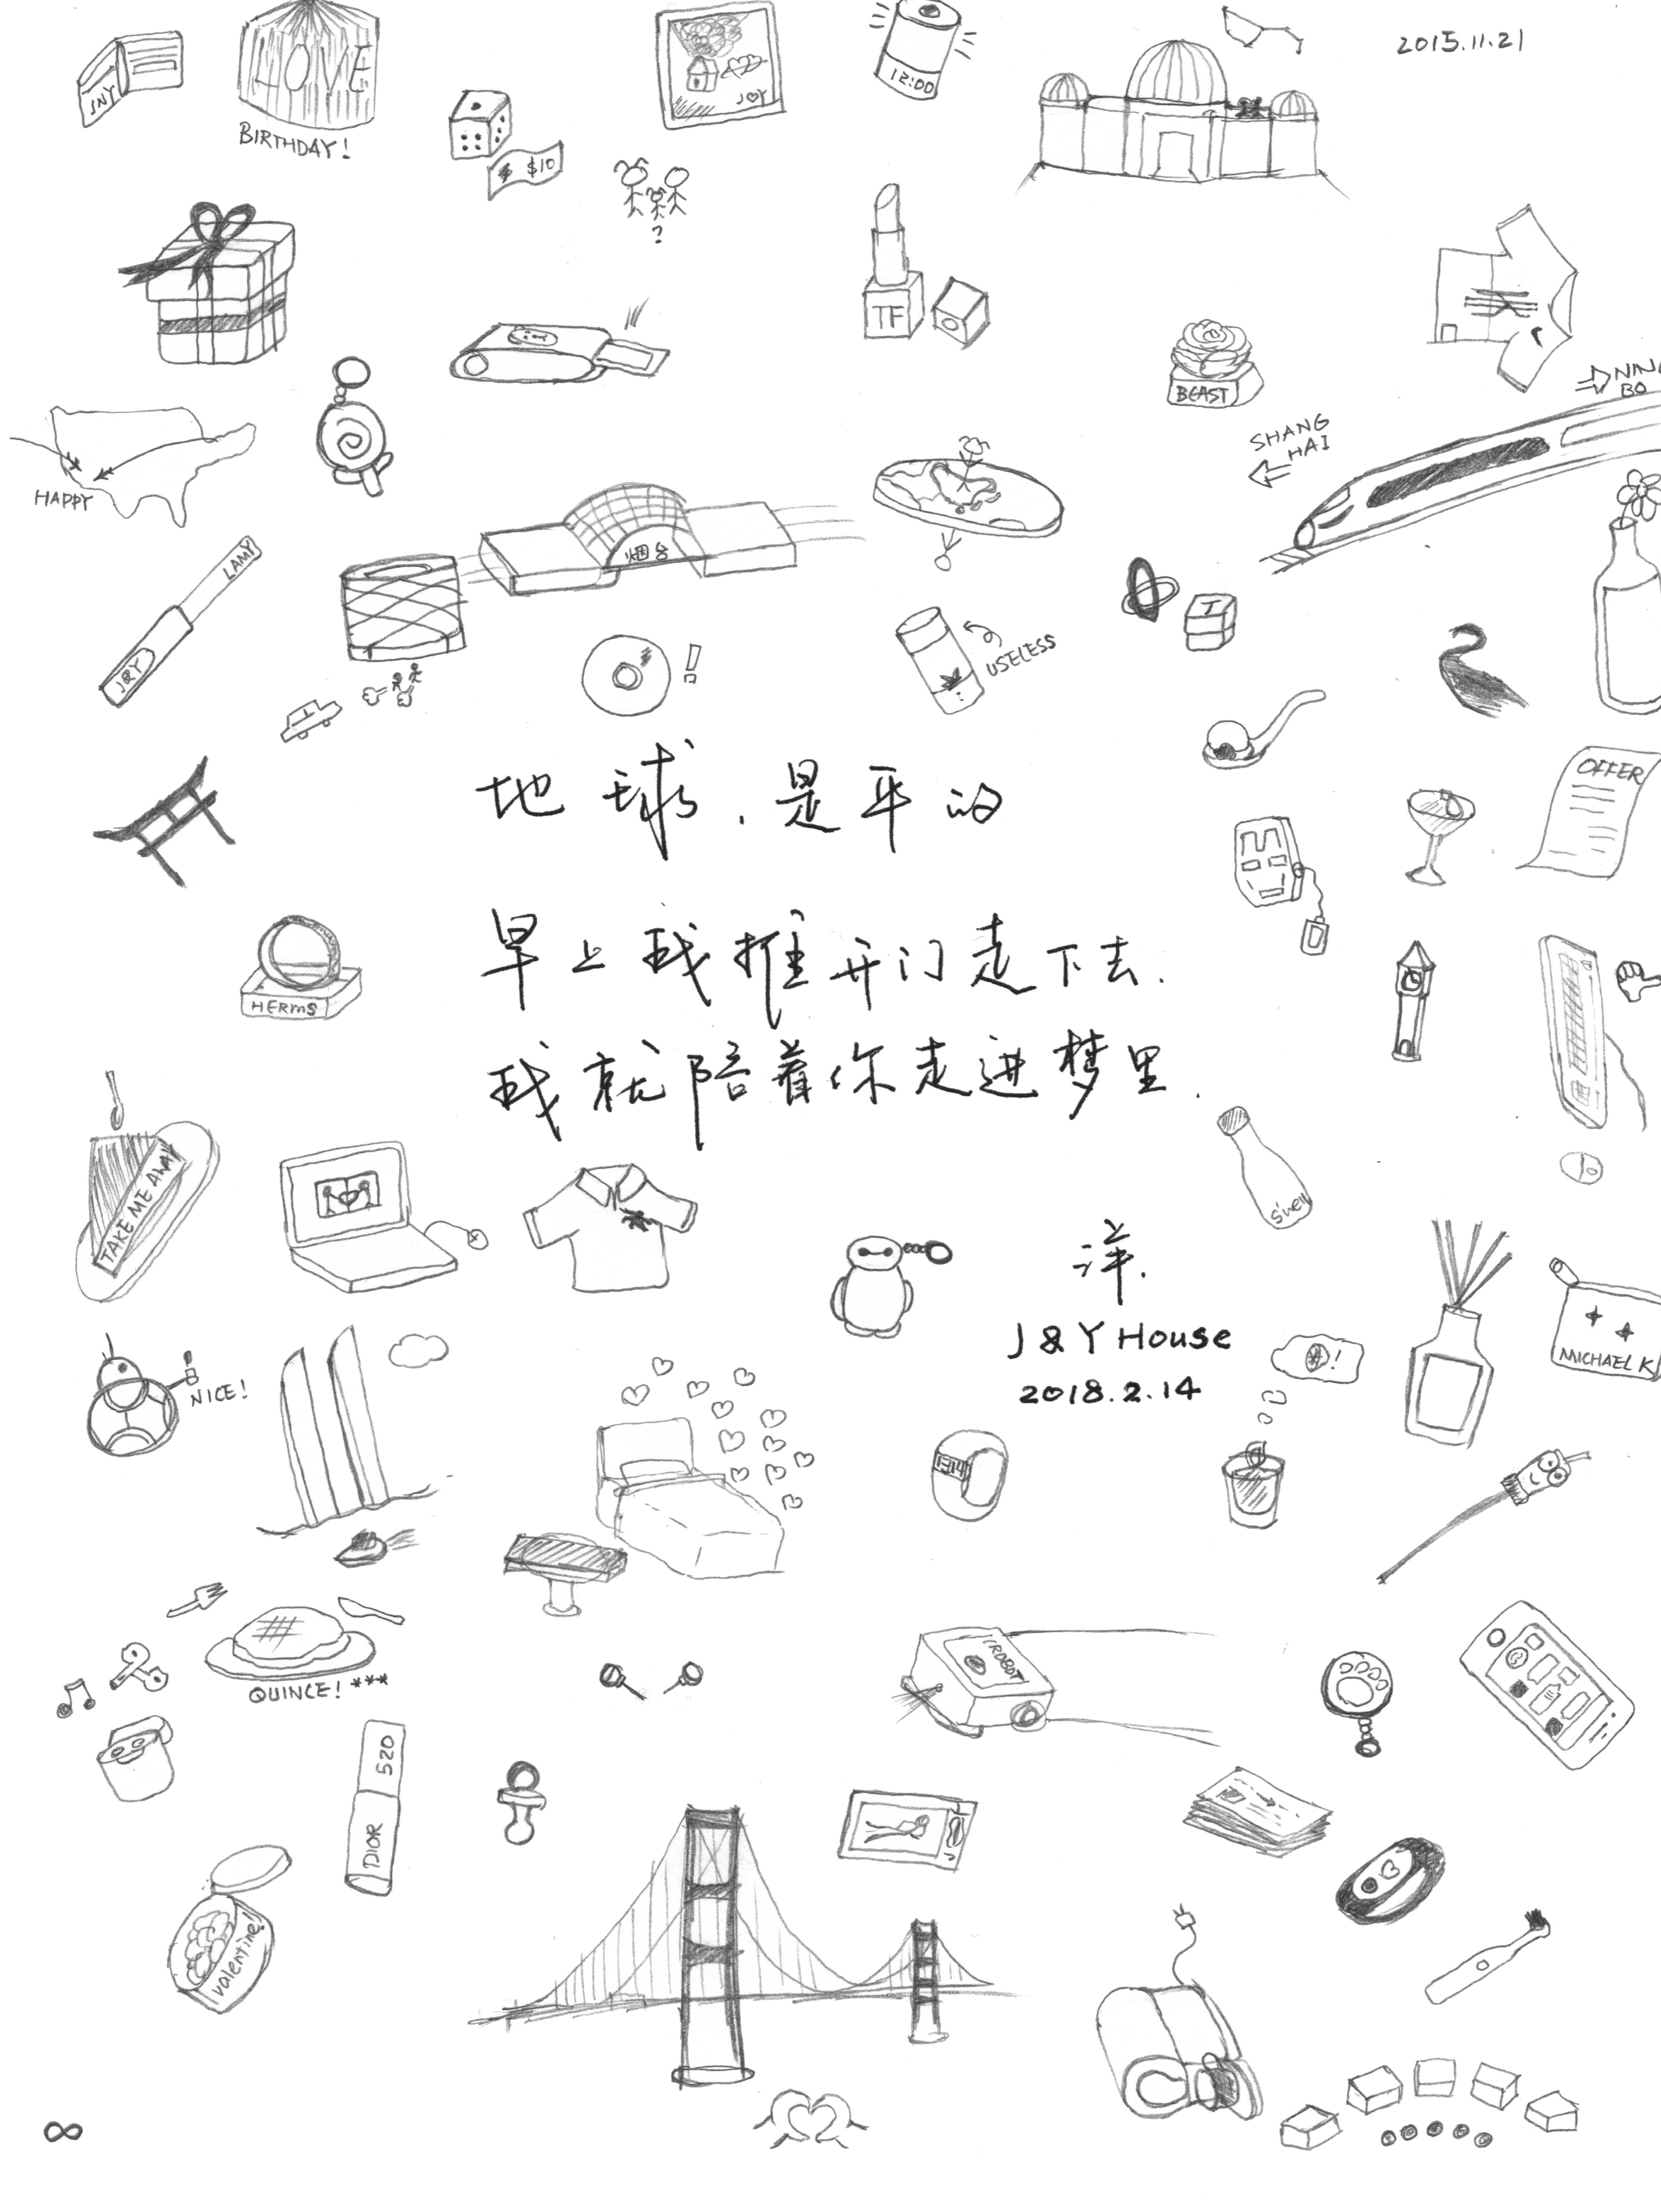 2015.11.21
JNY
LOVE
BIRTHDAY!
J♡Y
12:00
$10
?
TF
BEAST
NING
BO
SHANG
HAI
HAPPY
LAMY
J&Y
烟台
!
USELESS
T
OFFER
地球,是平的
早上我推开门走下去.
我就陪着你走进梦里.
HERMS
TAKE ME AWAY
s'well
洋.
J & Y House
2018.2.14
MICHAEL K
!
NICE!
1314
QUINCE! ***
IROBOT
520
DIOR
valentine!
∞